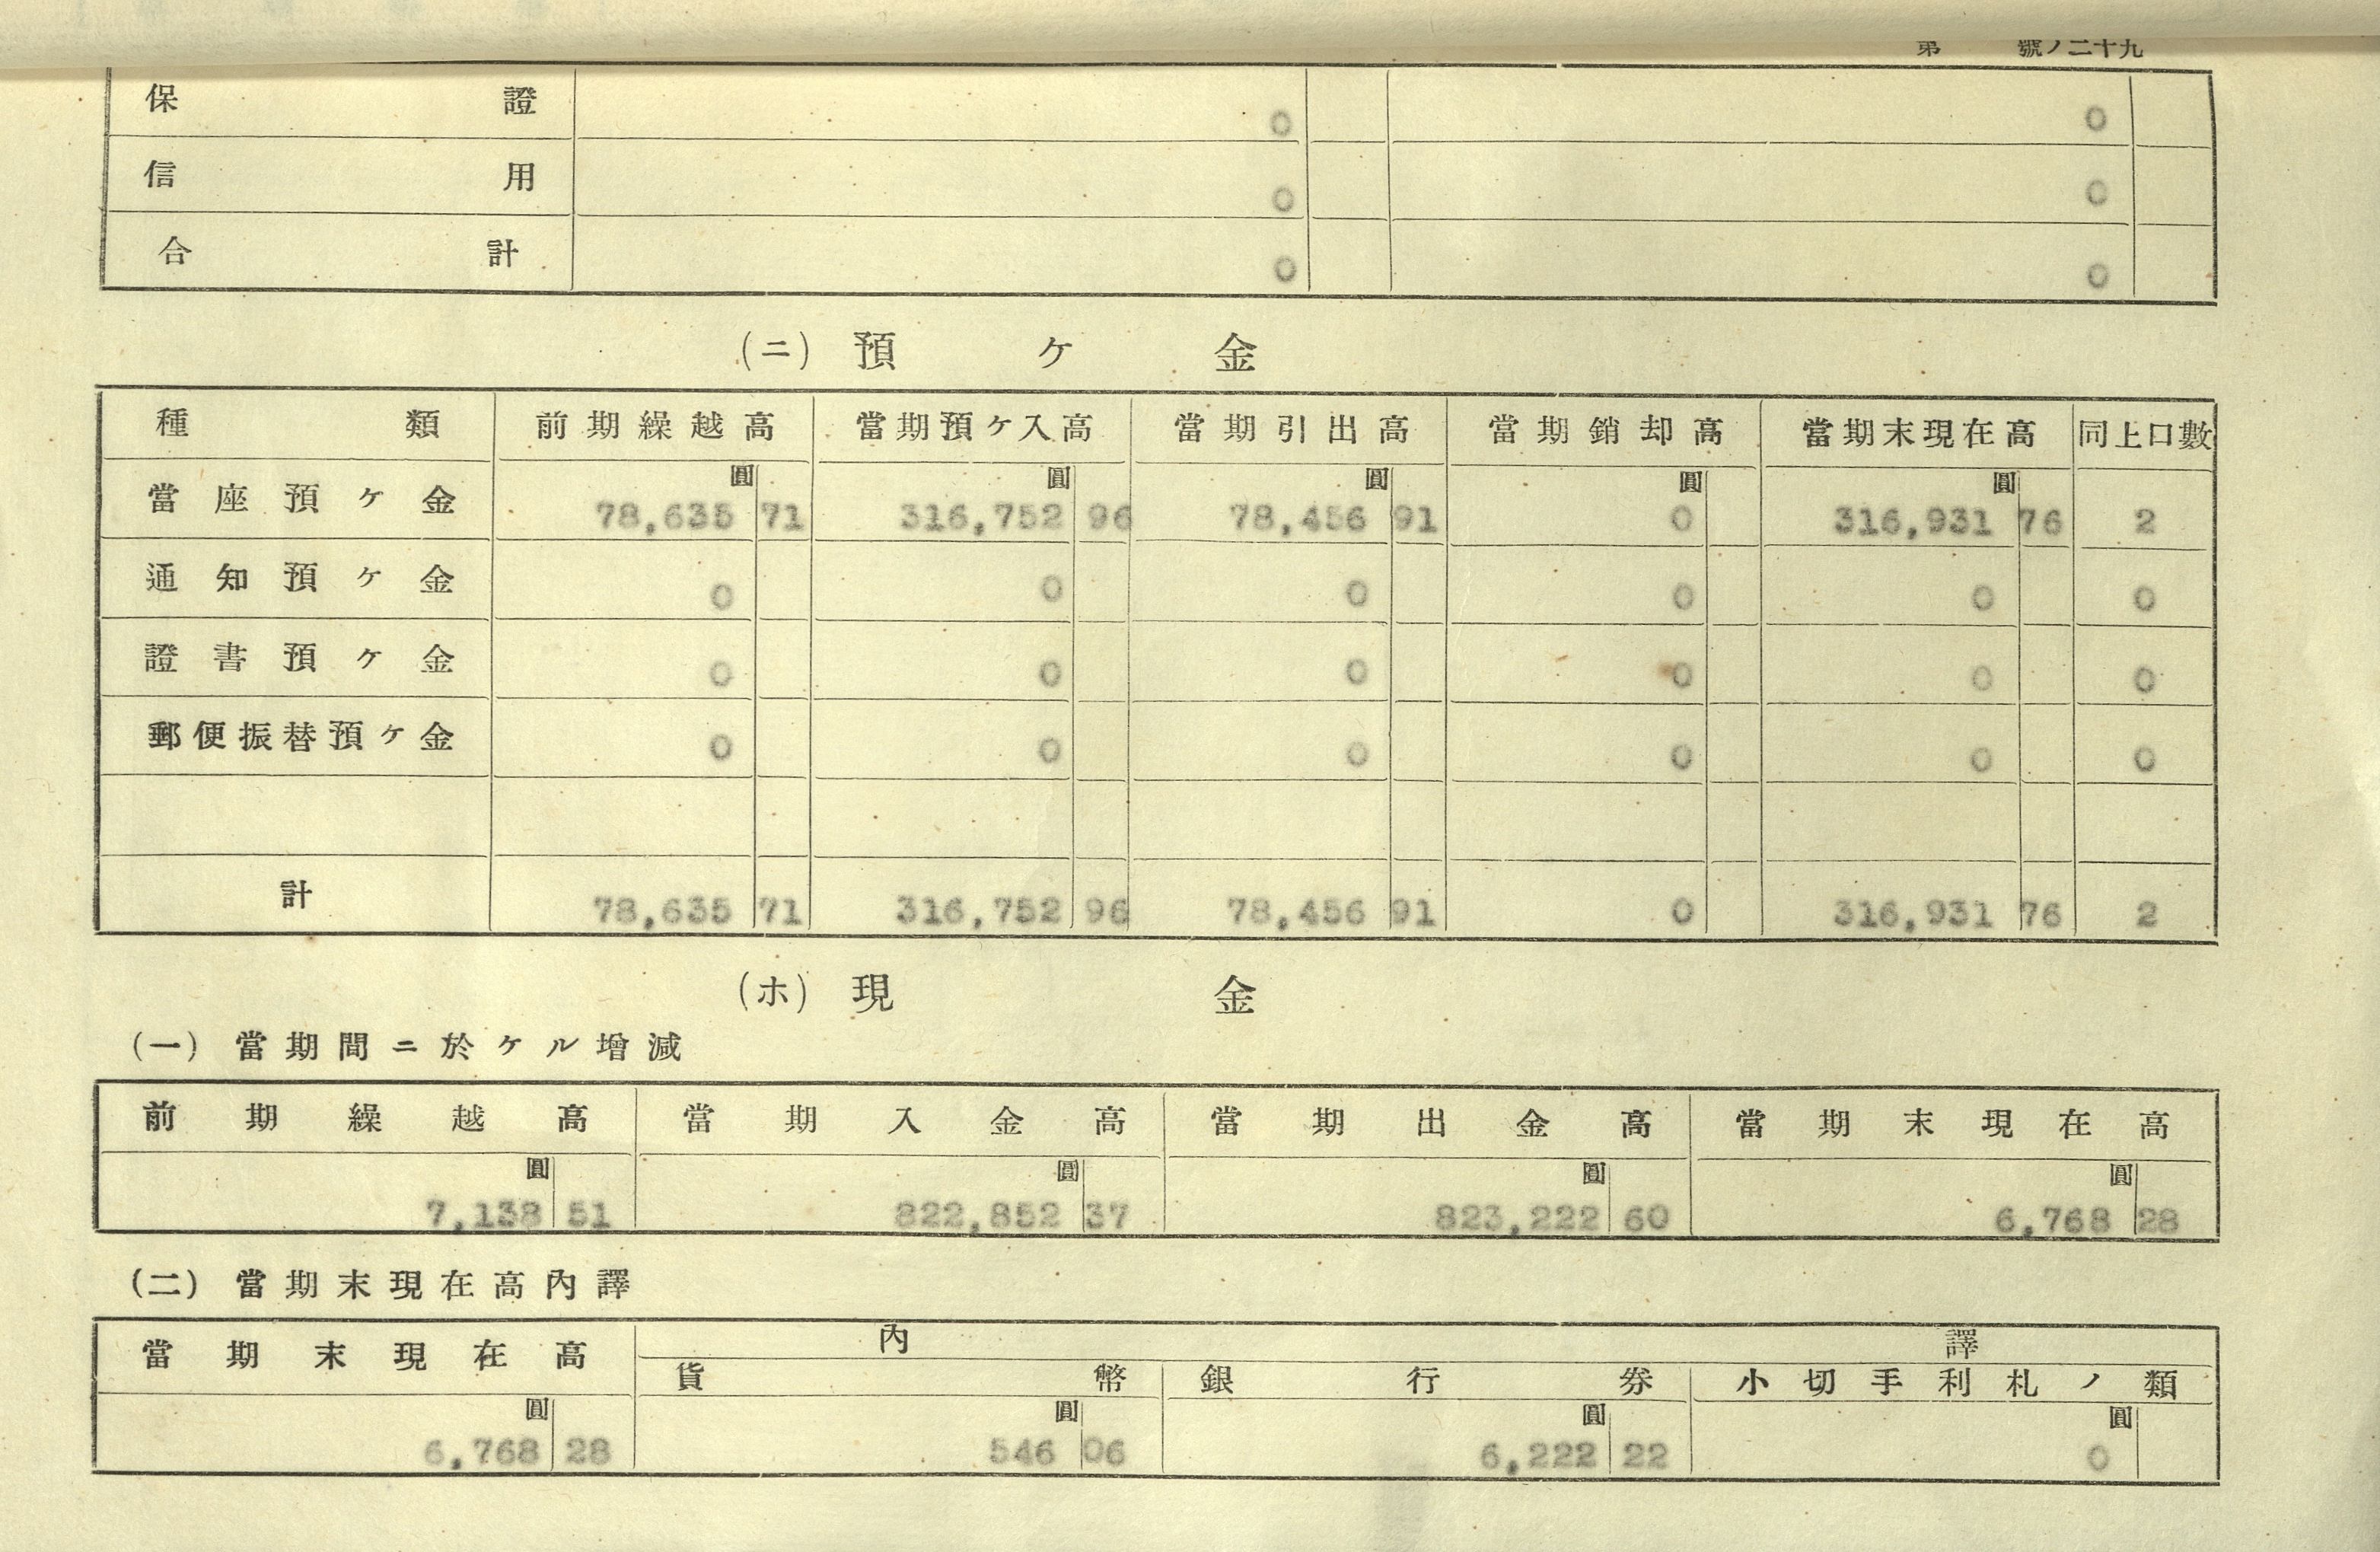 第 號ノ二十九
保證 0 0
信用 0 0
合計 0 0
(ニ) 預ヶ金
種類 前期繰越高 當期預ヶ入高 當期引出高 當期銷却高 當期末現在高 同上口數
圓 圓 圓 圓 圓
當座預ヶ金 78,635 71 316,752 96 78,456 91 0 316,931 76 2
通知預ヶ金 0 0 0 0 0 0
證書預ヶ金 0 0 0 0 0 0
郵便振替預ヶ金 0 0 0 0 0 0
計 78,635 71 316,752 96 78,456 91 0 316,931 76 2
(ホ) 現金
(一) 當期間ニ於ケル增減
前期繰越高 當期入金高 當期出金高 當期末現在高
圓 圓 圓 圓
7,138 51 822,852 37 823,222 60 6,768 28
(二) 當期末現在高內譯
當期末現在高 內譯
貨幣 銀行券 小切手利札ノ類
圓 圓 圓 圓
6,768 28 546 06 6,222 22 0